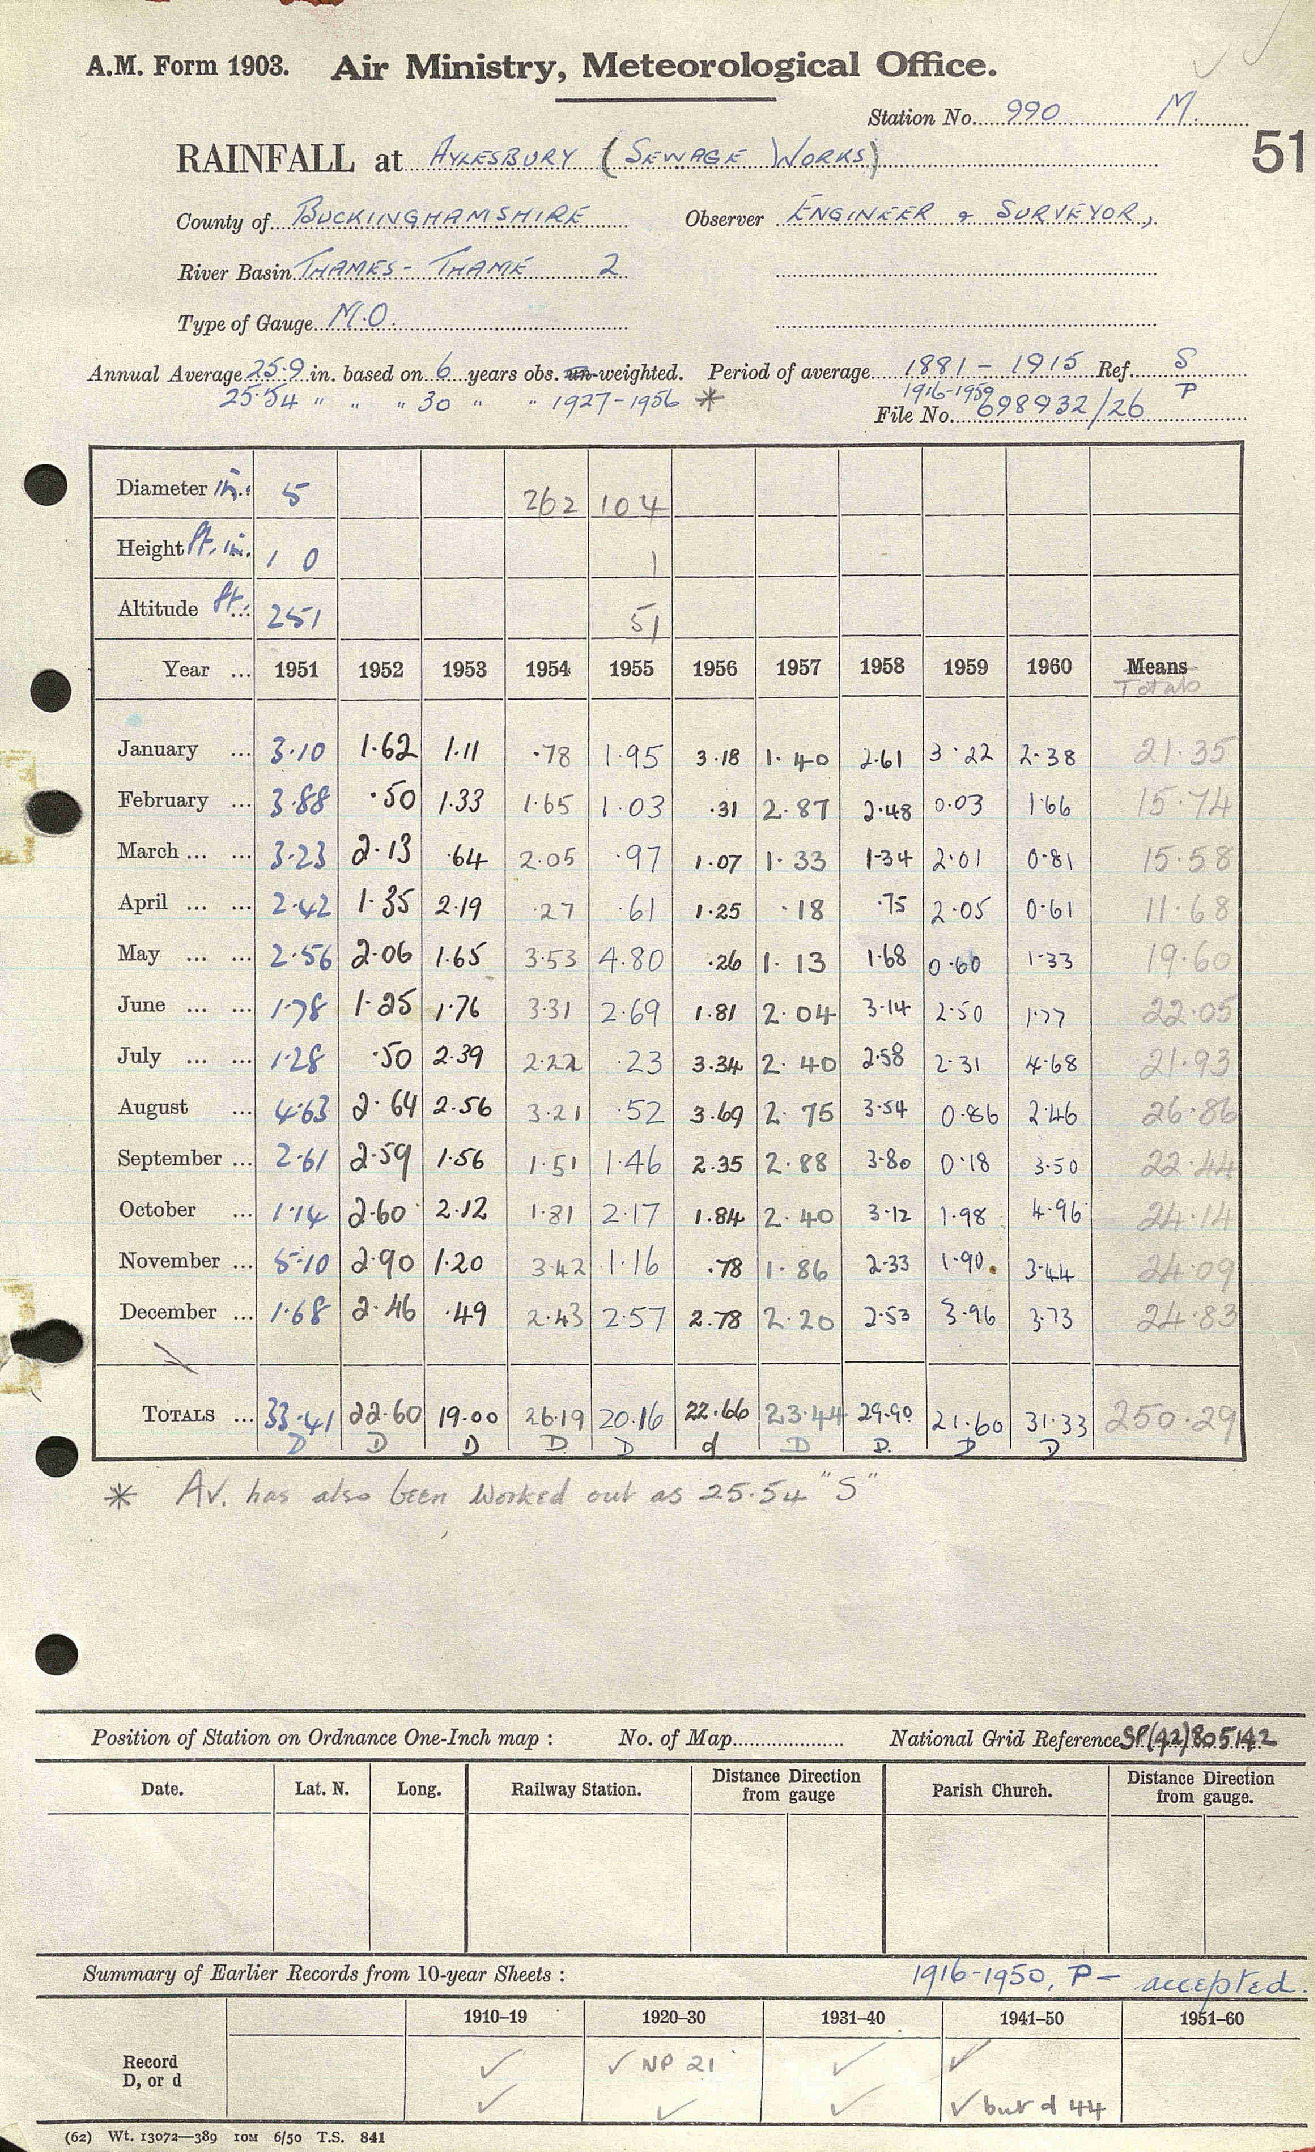 A.M. Form 1903. Air Ministry, Meteorological Office.
Station No. 990 M.
51
RAINFALL at AYLESBURY (SEWAGE WORKS)
County of BUCKINGHAMSHIRE Observer ENGINEER & SURVEYOR,
River Basin THAMES - THAME 2
Type of Gauge M.O.
Annual Average 25.9 in. based on 6 years obs. un-weighted. Period of average 1881 - 1915 Ref. S
25.54 " " " 30 " " 1927-1956 * 1916-1950 P
File No. 698932/26
Diameter in. 5 262 104
Height ft. in. 1 0 1
Altitude ft. 251 51
Year ... 1951 1952 1953 1954 1955 1956 1957 1958 1959 1960 Means
Totals
January ... 3.10 1.62 1.11 .78 1.95 3.18 1.40 2.61 3.22 2.38 21.35
February ... 3.88 .50 1.33 1.65 1.03 .31 2.87 2.48 0.03 1.66 15.74
March ... ... 3.23 2.13 .64 2.05 .97 1.07 1.33 1.34 2.01 0.81 15.58
April ... ... 2.42 1.35 2.19 .27 .61 1.25 .18 .75 2.05 0.61 11.68
May ... ... 2.56 2.06 1.65 3.53 4.80 .26 1.13 1.68 0.60 1.33 19.60
June ... ... 1.78 1.25 1.76 3.31 2.69 1.81 2.04 3.14 2.50 1.77 22.05
July ... ... 1.28 .50 2.39 2.22 .23 3.34 2.40 2.58 2.31 4.68 21.93
August ... 4.63 2.64 2.56 3.21 .52 3.69 2.75 3.54 0.86 2.46 26.86
September ... 2.61 2.59 1.56 1.51 1.46 2.35 2.88 3.80 0.18 3.50 22.44
October ... 1.14 2.60 2.12 1.81 2.17 1.84 2.40 3.12 1.98 4.96 24.14
November ... 5.10 2.90 1.20 3.42 1.16 .78 1.86 2.33 1.90 3.44 24.09
December ... 1.68 2.46 .49 2.43 2.57 2.78 2.20 2.53 3.96 3.73 24.83
TOTALS ... 33.41 22.60 19.00 26.19 20.16 22.66 23.44 29.90 21.60 31.33 250.29
D D D D D d D D. D D
* Av. has also been worked out as 25.54 "S"
Position of Station on Ordnance One-Inch map : No. of Map National Grid Reference SP(42)805142
Date. Lat. N. Long. Railway Station. Distance Direction from gauge Parish Church. Distance Direction from gauge.
Summary of Earlier Records from 10-year Sheets : 1916-1950, P - accepted.
1910-19 1920-30 1931-40 1941-50 1951-60
Record ✓ ✓ NP 21 ✓ ✓
D, or d ✓ ✓ ✓ ✓ but d 44
(62) Wt. 13072—389 10M 6/50 T.S. 841